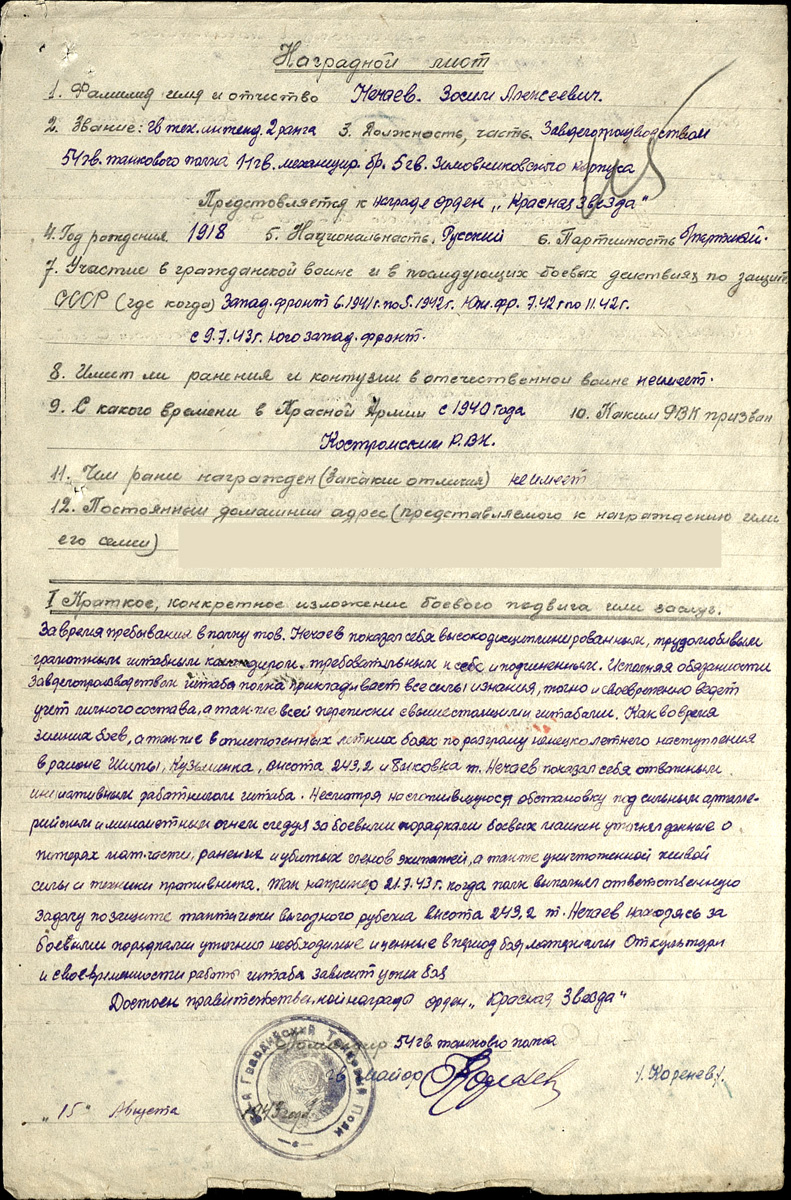 Наградной лист
1. Фамилия имя и отчество Нечаев. Зосим Алексеевич.
2. Звание: гв тех. интенд. 2 ранга 3. Должность, часть. Завделопроизводством
54 гв. танкового полка 11 гв. механизир. бр. 5 гв. Зимовниковского корпуса
Предстовляется к награде орден „Красная Звезда"
4. Год рождения 1918 5. Национальность. Русский 6. Партийность
7. Участие в гражданской воине и в последующих боевых действиях по защит
СССР (где когда) Запад. фронт 6.1941г. по 5.1942г. Юж. фр. 7.42г по 11.42г.
с 9.7.43г. Юго запад. фронт.
8. Имеет ли ранения и контузии в отечественной воине неимеет.
9. С какого времени в Красной Армии с 1940 года 10. Каким РВК призван
Костромским Р.В.К.
11. Чем ранее награжден (за какие отличия) неимеет
12. Постоянный домашнии адрес (представляемого к награждению или
его семеи)
I Краткое, конкретное изложение боевого подвига или заслуг.
За время пребывания в полку тов. Нечаев показал себя высокодисциплинированным, трудолюбивым
грамотным штабным командиром, требовательным к себе и подчиненным. Исполняя обязанности
Завделопроизводством штаба полка прикладывает все силы и знания, точно и своевременно ведет
учет личного состава, а так-же всей переписки с вышестоящими штабами. Как во время
зимних боев, а так-же в ожесточенных летних боях по разгрому немецкого летнего наступления
в районе Шипы, Кузьминка, высота 243,2 и Быковка т. Нечаев показал себя отважным
инициативным работником штаба. Несмотря на сложившуюся обстановку под сильным артилле-
рийским и минометным огнем следуя за боевыми порядками боевых машин уточнял данные о
потерях матчасти, ранения и убитых членов экипажей, а также уничтоженной живой
силы и техники противника. Так например 21.7.43г. когда полк выполнял ответственную
задачу по защите тактически выгодного рубежа высота 243,2 т. Нечаев находясь за
боевыми порядками уточнил необходимые и ценные в период боя материалы От культуры
и своевременности работы штаба зависит успех боя
Достоен правительственной награды орден „Красная Звезда"
Командир 54 гв. танкового полка
гв майор /. Коренев /.
„15" Августа 1943 года
й Гвардейский Танковый Полк